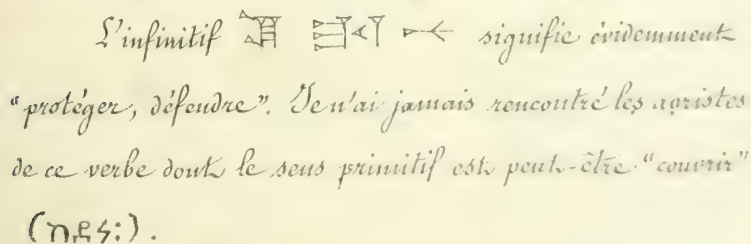 L'infinitif 𒉡 signifie évidemment
"protéger, défendre". Je n'ai jamais rencontré les aoristes
de ce verbe dont le sens primitif est peut-être "couvrir"